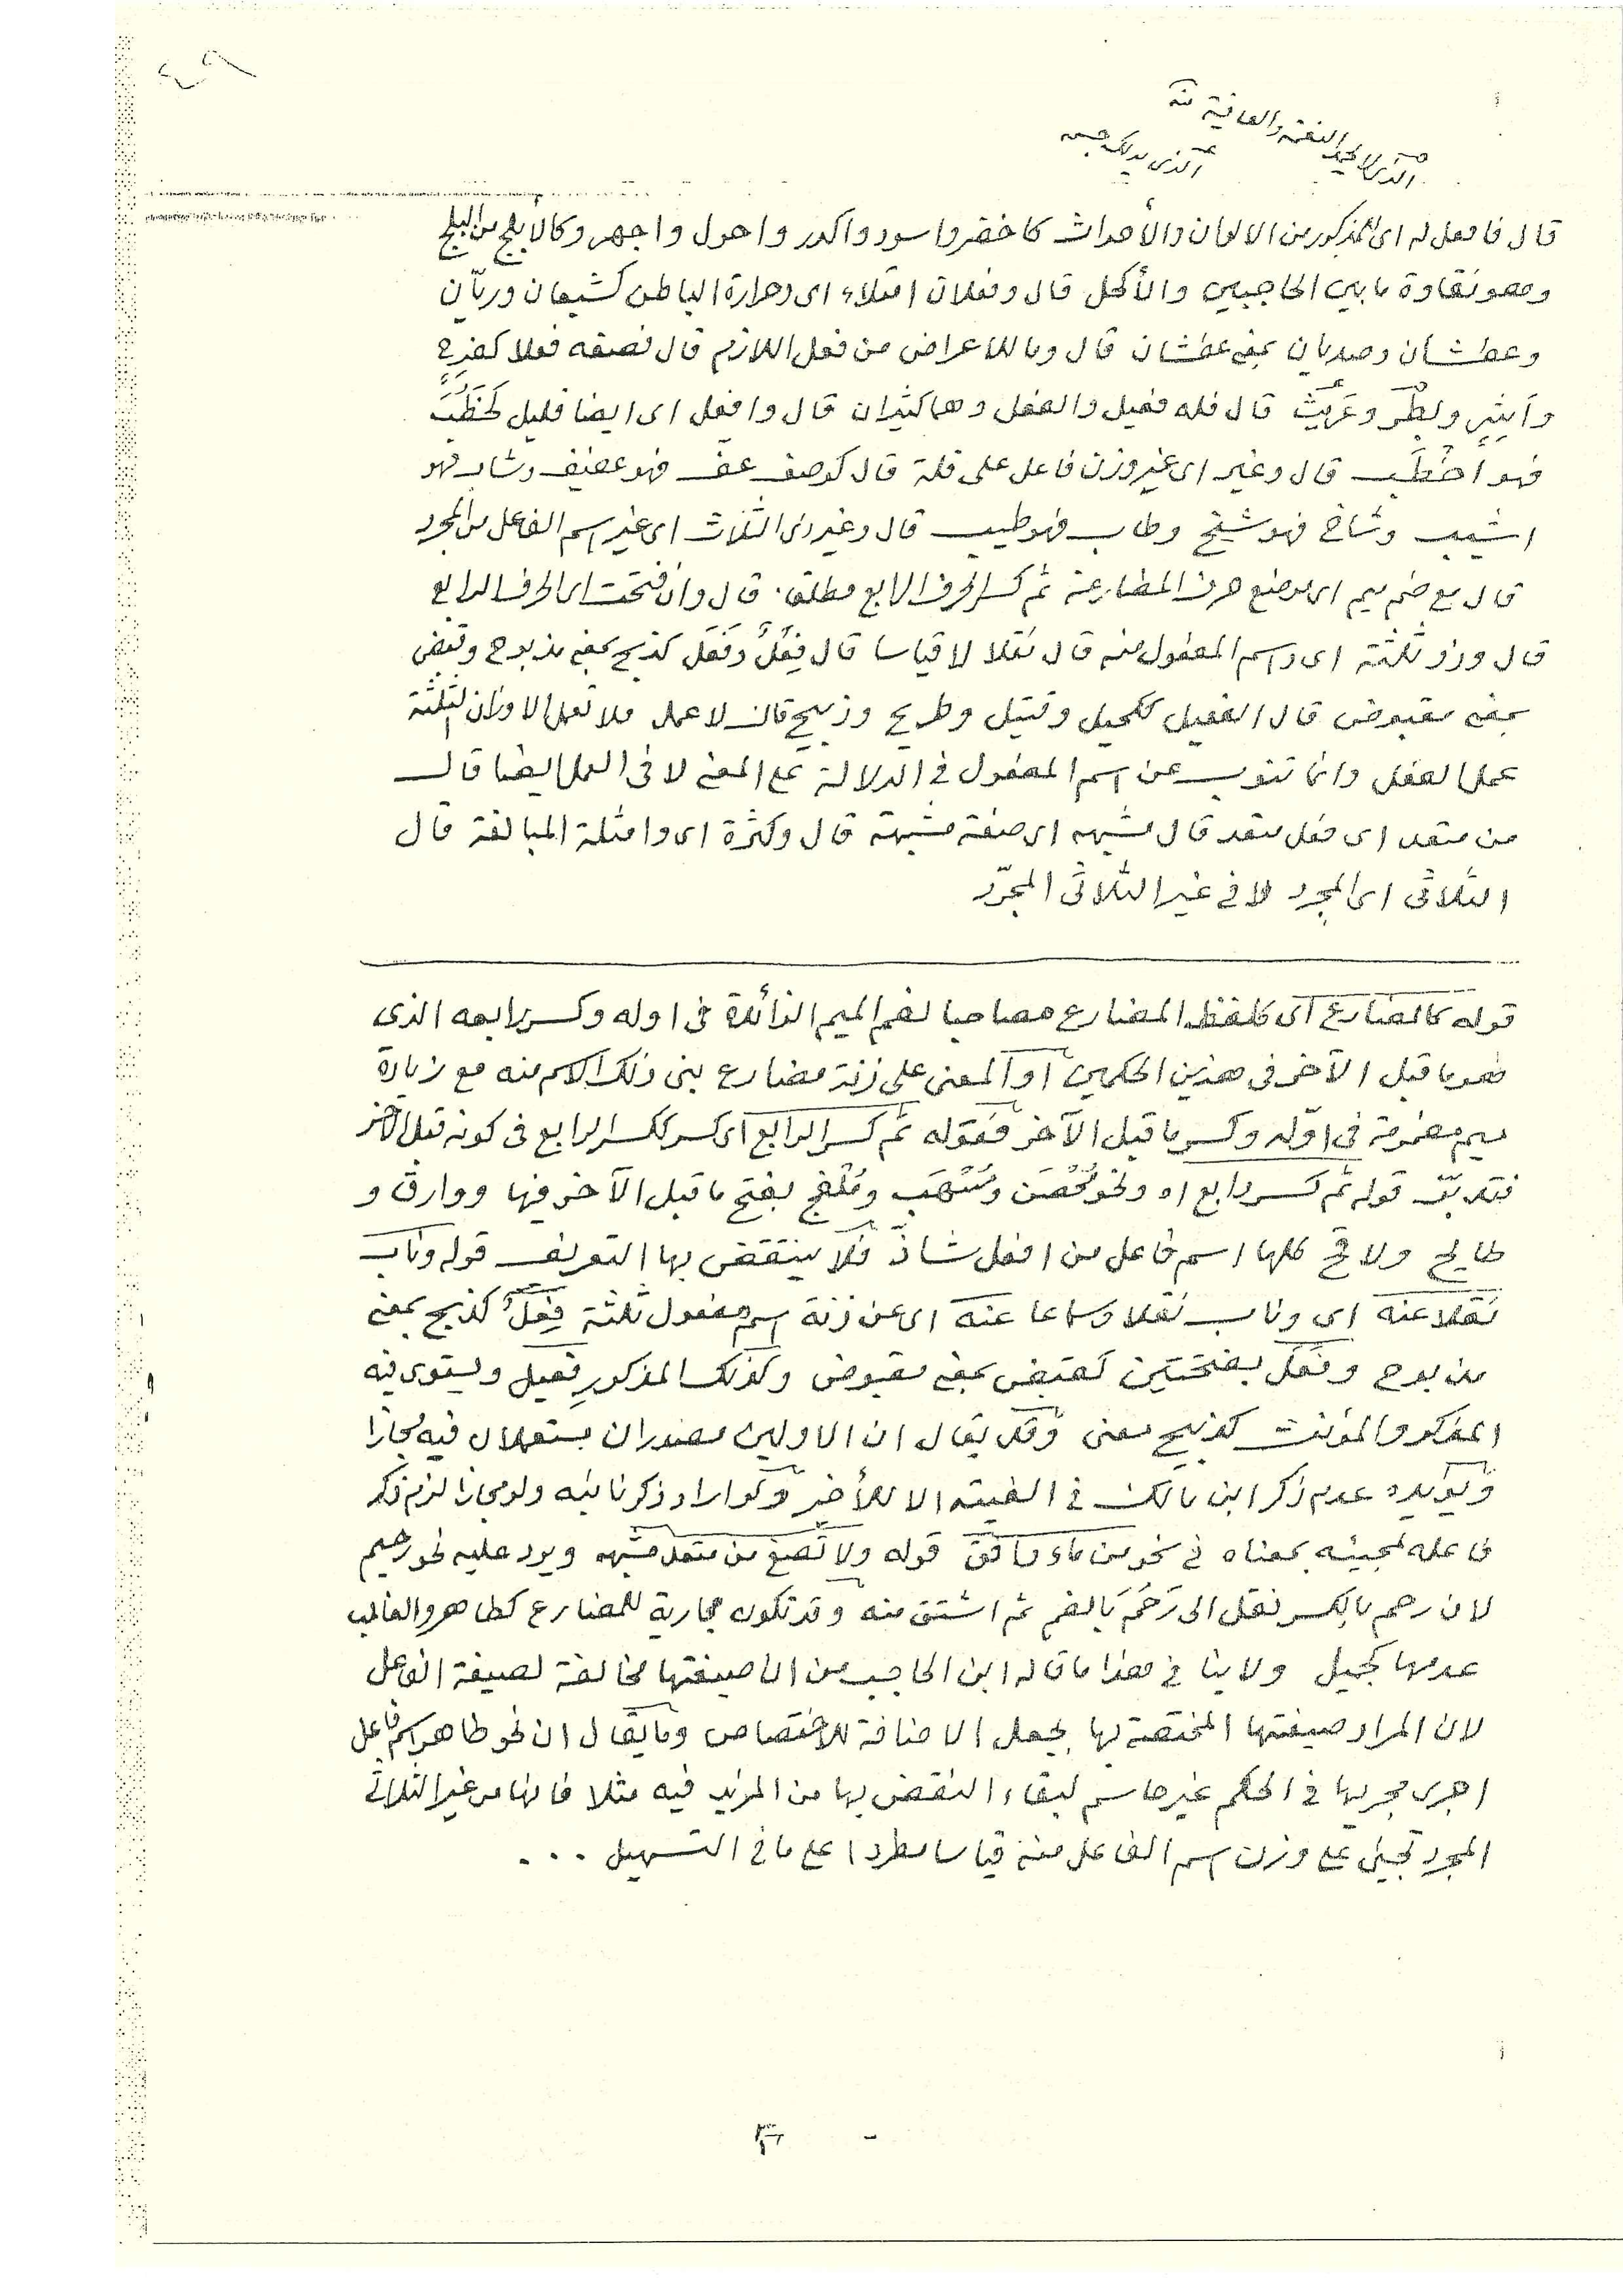 قال فافعل له اى المذكور من الالوان والأحداث كاخضر واسود واكدر واحول واجهر وكالأبلج من البلج
وهو نقاوة ما بين الحاجبين والأكحل قال وفعلان امتلاء اى وحرارة الباطن كشبعان وريّان
وعطشان وصديان بمعنى عطشان قال وما للاعراض من فعل اللازم قال فصفه فعلا كفرح
وأشِر وبطِر وغرِث قال فله فعيل والفعل وهما كثيران قال وافعل اى ايضا قليل كخَطُبَ
فهو اخطب قال وغير اى غير وزن فاعل على قلة قال كوصف عف فهو عفيف وشاب فهو
اشيب وشاخ فهو شيخ وطاب فهو طيب قال وغير ذى الثلاث اى غير اسم الفاعل من المجرد
قال مع ضم ميم اى موضع حرف المضارعة ثم كسر الحرف الرابع مطلقا. قال وان فتحت اى الحرف الرابع
قال وزنو ثلثة اى واسم المفعول منه قال نقلا لا قياسا قال فِعْلٌ وفَعَل كذبح بمعنى مذبوح وقبض
بمعنى مقبوض قال الفعيل ككحيل وقتيل وطريح وذبيح قال لا عمل فلا تعمل الاوزان الثلثة
عمل الفعل وانما تنوب عن اسم المفعول فى الدلالة على المعنى لا فى العمل ايضا قال
من متعد اى فعل متعد قال مشبهه اى صفة مشبهة قال وكثرة اى وامثلة المبالغة قال
الثلاثى اى المجرد لا فى غير الثلاثى المجرّد
قوله كالمضارع اى كلفظ المضارع مصاحبا لضم الميم الزائدة فى اوله وكسر رابعه الذى
هو ما قبل الآخر فى هذين الحكمين او المعنى على زنة مضارع بنى ذلك الاسم منه مع زيادة
ميم مضمومة فى اوّله وكسر ما قبل الآخر فقوله ثم كسر الرابع اى كسر ككسر الرابع فى كونه قبل الآخر
فتدبّر قوله ثم كسر رابع اه ونحو مُحْصَن ومُسْهَب ومُلْفَج بفتح ما قبل الآخر فيها ووارق و
طايح ولاقح كلها اسم فاعل من افعل شاذّ فلا ينتقض بها التعريف قوله وناب
نقلا عنه اى وناب نقلا وسماعا عنه اى عن زنة اسم مفعول ثلثة فِعْلٌ كذبح بمعنى
مذبوح وفَعَل بفتحتين كقبض بمعنى مقبوض وكذلك المذكور فعيل ويستوى فيه
المذكر والمؤنث كذبيح معنى وقد يقال ان الاولين مصدران يستعملان فيه مجازا
ويؤيده عدم ذكر ابن مالك فى الفيته الا للأخير ولو اراد ذكر نائبه ولو مجازا لزم ذكر
فاعله لمجيئه بمعناه فى نحو من ماء دافق قوله ولا تصغ من متعد مشبهه ويرد عليه نحو رحيم
لان رحم بالكسر نقل الى رَحُمَ بالضم ثم اشتق منه وقد تكون مجارية للمضارع كطاهر والغالب
عدمها كجميل ولا ينافى هذا ما قاله ابن الحاجب من ان صيغتها مخالفة لصيغة الفاعل
لان المراد صيغتها المختصة لها بجعل الاضافة للاختصاص وما يقال ان نحو طاهر اسم فاعل
اجرى مجريها فى الحكم غير حاسم لبقاء النقض بها من المزيد فيه مثلا فانها من غير الثلاثى
المجرد تجيئ على وزن اسم الفاعل منه قياسا مطردا على ما فى التسهيل ...